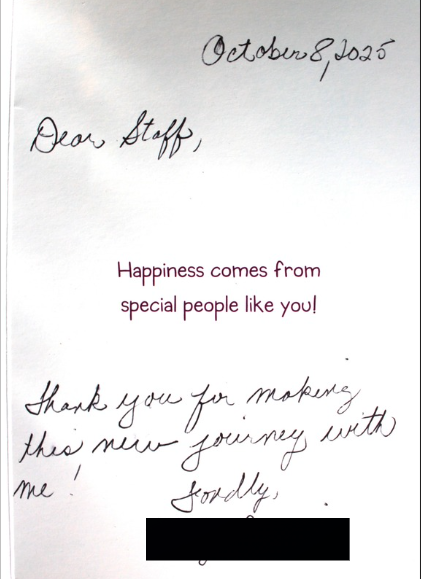 October 8, 2025
Dear Staff,
Happiness comes from
special people like you!
Thank you for making
this new journey with
me!
Fondly,